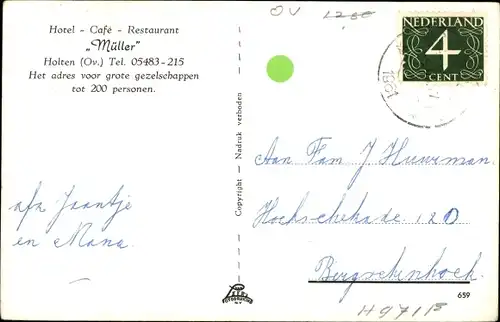 Hotel - Café - Restaurant
„Müller"
Holten (Ov.) Tel. 05483-215
Het adres voor grote gezelschappen
tot 200 personen.
OV
NEDERLAND
4
CENT
Copyright - Nadruk verboden
Aan Fam J Huurman.
Hochschekade 120
Bergschenhoek.
afz Jaantje
en Mana
659
H971F